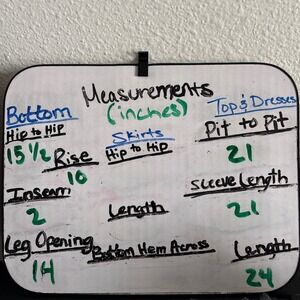 Measurements
(inches)
Bottom
Hip to Hip
15 1/2
Rise
10
Inseam
2
Leg Opening
14
Skirts
Hip to Hip
Length
Bottom Hem Across
Top & Dresses
Pit to Pit
21
Sleeve Length
21
Length
24